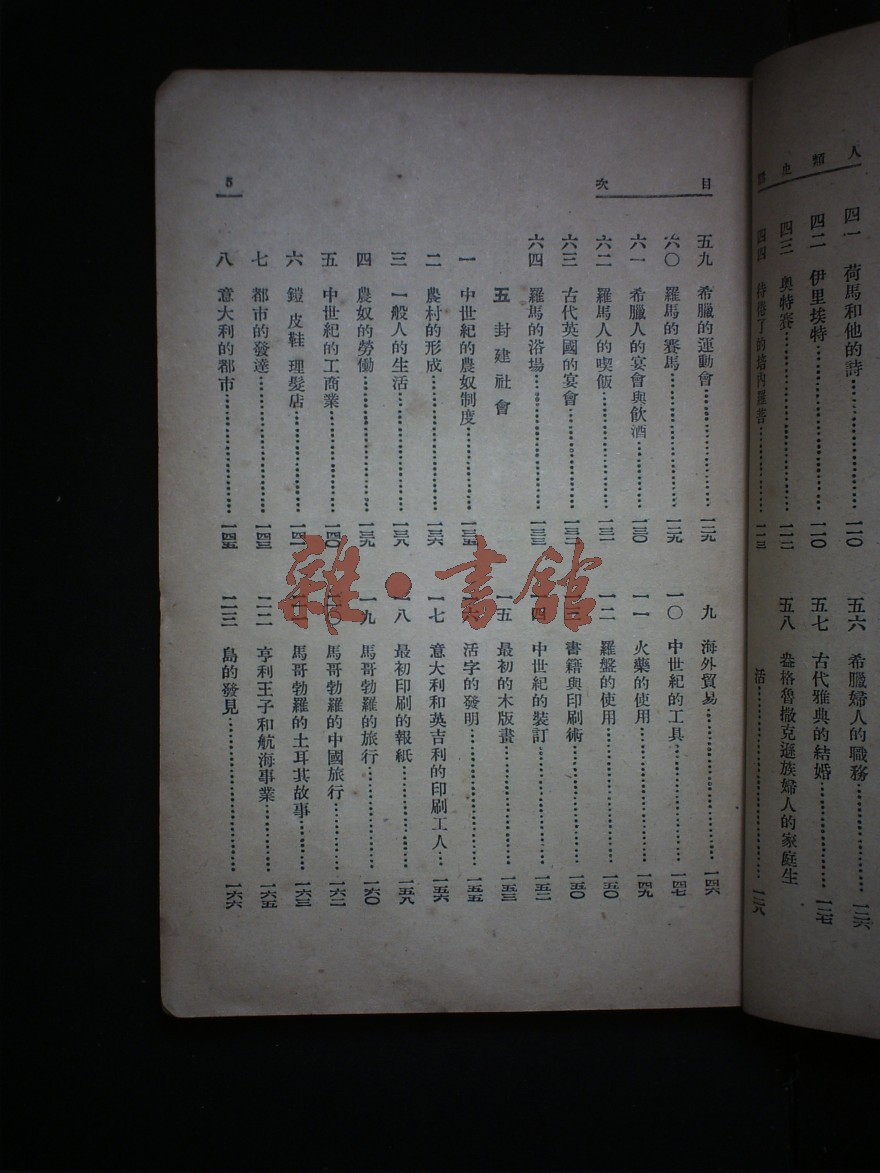 人類史話
四一　荷馬和他的詩……一一〇
四二　伊里埃特……一一〇
四三　奧特賽……一一二
五六　希臘婦人的職務……一二六
五七　古代雅典的結婚……一二七
五八　盎格魯撒克遜族婦人的家庭生
活……一二八
目次
5
五九　希臘的運動會……一二九
六〇　羅馬的賽馬……一二九
六一　希臘人的宴會與飲酒……一三〇
六二　羅馬人的喫飯……一三一
六三　古代英國的宴會……一三二
六四　羅馬的浴場……一三三
五　封建社會
一　中世紀的農奴制度……一三五
二　農村的形成……一三六
三　一般人的生活……一三八
四　農奴的勞働……一三九
五　中世紀的工商業……一四〇
六　鎧　皮鞋　理髮店……一四一
七　都市的發達……一四三
八　意大利的都市……一四五
九　海外貿易……一四六
一〇　中世紀的工具……一四七
一一　火藥的使用……一四九
一二　羅盤的使用……一五〇
一三　書籍與印刷術……一五〇
一四　中世紀的裝訂……一五二
一五　最初的木版畫……一五三
一六　活字的發明……一五五
一七　意大利和英吉利的印刷工人……一五六
一八　最初印刷的報紙……一五八
一九　馬哥勃羅的旅行……一六〇
二〇　馬哥勃羅的中國旅行……一六二
二一　馬哥勃羅的土耳其故事……一六三
二二　亨利王子和航海事業……一六五
二三　島的發見……一六六
雜·書館